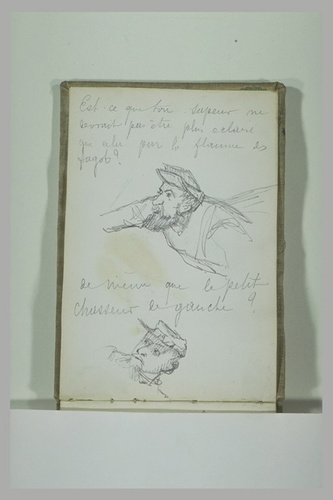 Est-ce que ton sapeur ne
devrait pas être plus éclairé
que cela par la flamme des
fagots?
de même que le petit
chasseur de gauche?